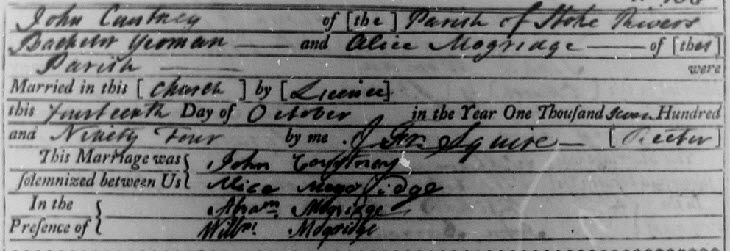 John Cuntney of [the] Parish of Stoke Rivers
Bachelr Yeoman and Alice Mogridge of [the]
Parish were
Married in this [Church] by [Licence]
this fourteenth Day of October in the Year One Thousand seven Hundred
and Ninety Four by me Jn. Squire [Rector]
This Marriage was John
solemnized between Us Alice Mogridge
In the Abram Mogridge
Presence of Willm. Mogridge